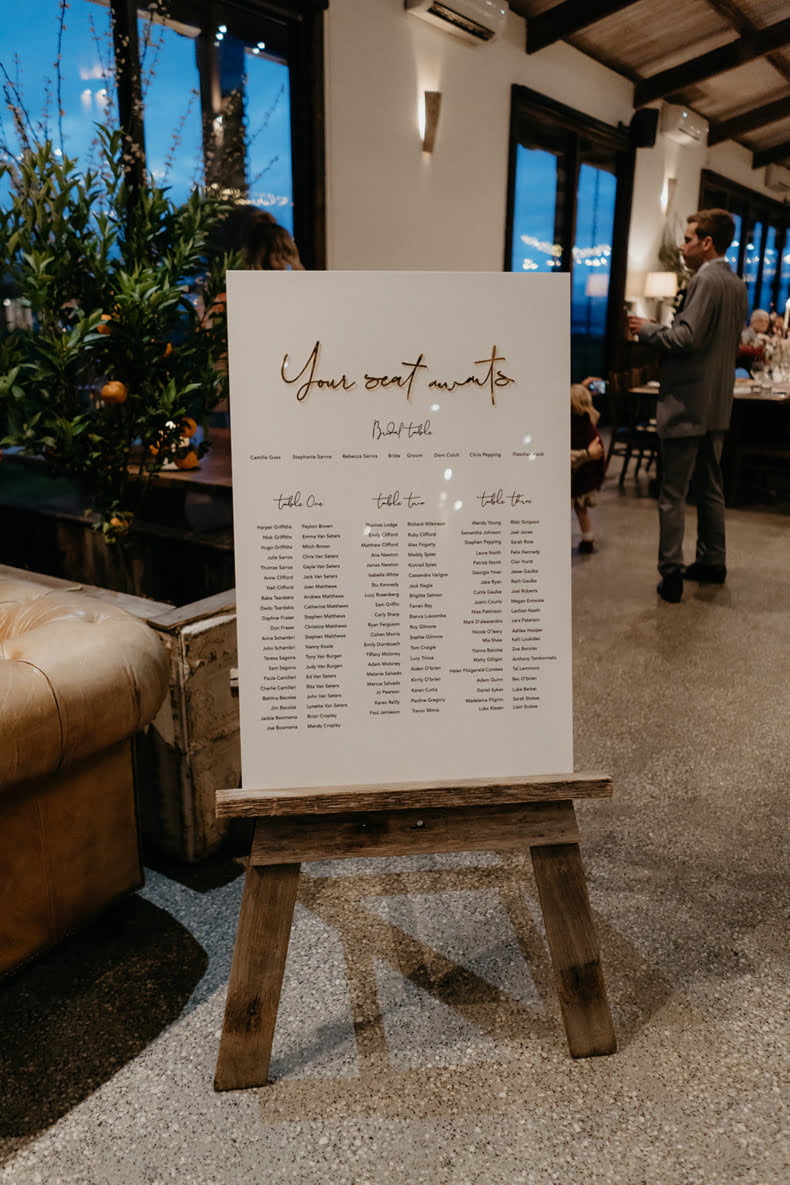 Your seat awaits
Bridal table
Camille Guss Stephanie Sarros Rebecca Sarros Bride Groom Dom Colch Chris Pepping Fletcher
table One
Harper Griffiths Peyton Brown
Nick Griffiths Emma Van Seters
Hugo Griffiths Mitch Brown
Julie Sarros Chris Van Seters
Thomas Sarros Gayle Van Seters
Anne Clifford Jack Van Seters
Neil Clifford Joan Matthews
Babe Tsardakis Andrew Matthews
Dedo Tsardakis Catherine Matthews
Daphne Fraser Stephen Matthews
Don Fraser Christine Matthews
Anna Schembri Stephen Matthews
John Schembri Nancy
Teresa Sagona Tony Van Burgen
Sam Sagona Judy Van Burgen
Paula Camilleri Ed Van Seters
Charlie Camilleri Rita Van Seters
Bettina Bacolas John Van Seters
Jim Bacolas Lynette Van Seters
Jackie Bosmania Brian Cropley
Joe Bosmania Mandy Cropley
table two
Thomas Lodge Richard Wilkinson
Emily Clifford Ruby Clifford
Matthew Clifford Alex Fogarty
Ana Newton Maddy Spies
James Newton Konrad Spies
Isabella White Cassandra Varigos
Stu Kennedy Jack Nagle
Lucy Rosenberg Brigitte Salmon
Sam Griffin Farren Ray
Carly Sharp Bianca Luscombe
Ryan Ferguson Roy Gilmore
Cohen Morris Sophie Gilmore
Emily Dornbusch Tom Craigie
Tiffany Moloney Lucy Trinca
Adam Moloney Aiden O'brien
Melanie Salvado Kirrily O'brien
Marcus Salvado Karen Curtis
Jo Pearson Pauline Gregory
Karen Reilly Trevor Mimis
Paul Jamieson
table three
Wendy Young Rikki Simpson
Samantha Johnson Joel Jones
Stephen Pepping Sarah Ross
Laura North Felix Kennedy
Patrick North Clair Hurst
Georgia Yman Jesse Gaulke
Jake Ryan Rach Gaulke
Curtis Gaulke Joel Roberts
Justin Countz Megan Entwisle
Nikas Pettinson Lachlan Keath
Mark D'alessandro Lara Paterson
Nicole O'leary Ashlee Hooper
Mia Shaw Kelli Loukides
Yianna Bacolas Zoe Bacolas
Matty Gilligan Anthony Tamborriello
Helen Fitzgerald-Combes Tai Lammons
Adam Quinn Bec O'brien
Daniel Sykes Luke Barker
Madeleine Pilgrim Sarah Stokes
Luke Klazen Liam Stokes